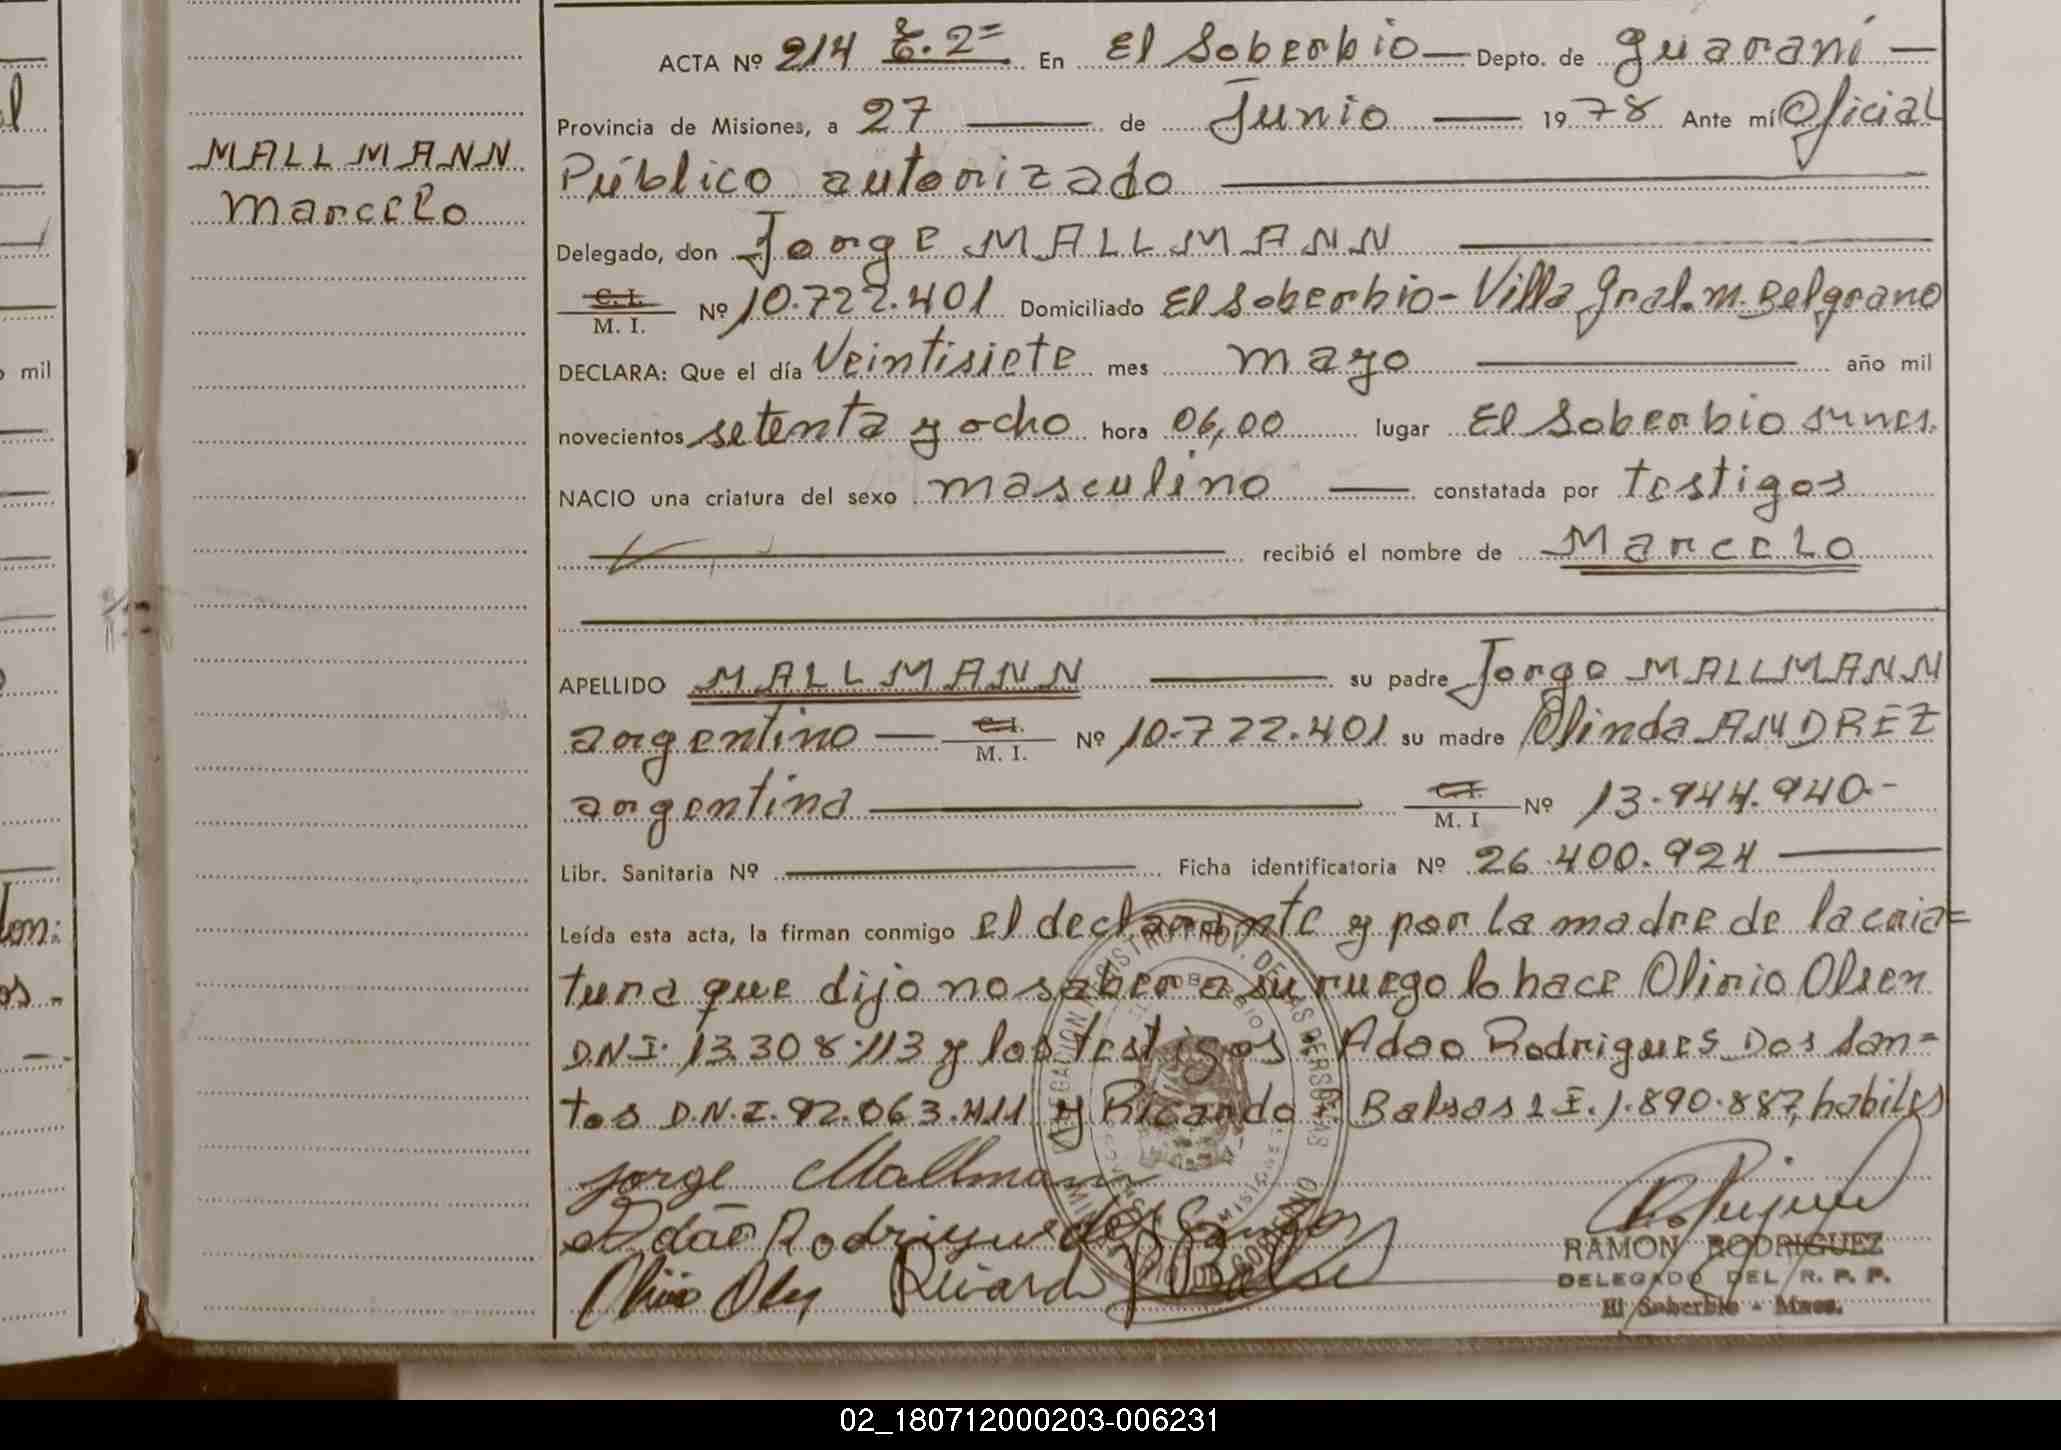 MALLMANN
Marcelo
ACTA Nº 214 T. 2= En El Soberbio — Depto. de Guaraní —
Provincia de Misiones, a 27 — de Junio — 1978 Ante mí Oficial
Público autorizado
Delegado, don Jorge MALLMANN
C. I.
M. I. Nº 10.722.401 Domiciliado El Soberbio - Villa Gral. M. Belgrano
DECLARA: Que el día Veintisiete mes mayo — año mil
novecientos setenta y ocho hora 06,00 lugar El Soberbio
NACIO una criatura del sexo masculino — constatada por testigos
recibió el nombre de Marcelo
APELLIDO MALLMANN — su padre Jorge MALLMANN
argentino — C. I.
M. I. Nº 10.722.401 su madre Olinda ANDREZ
argentina — C. I.
M. I Nº 13.944.940.-
Libr. Sanitaria Nº — Ficha identificatoria Nº 26.400.924 —
Leída esta acta, la firman conmigo el declarante y por la madre de la cria=
tura que dijo no saber a su ruego lo hace Olirio Olsen
D.N.I. 13.308.113 y los testigos Adao Rodrigues Dos San=
tos D.N.I. 92.063.411 y Ricardo R Balsas L E. 1.890.887, habiles
Jorge Mallmann
Adão Rodrigues dos Santos
RAMON RODRIGUEZ
DELEGADO DEL R. P. P.
El Soberbio - Mnes.
02_180712000203-006231